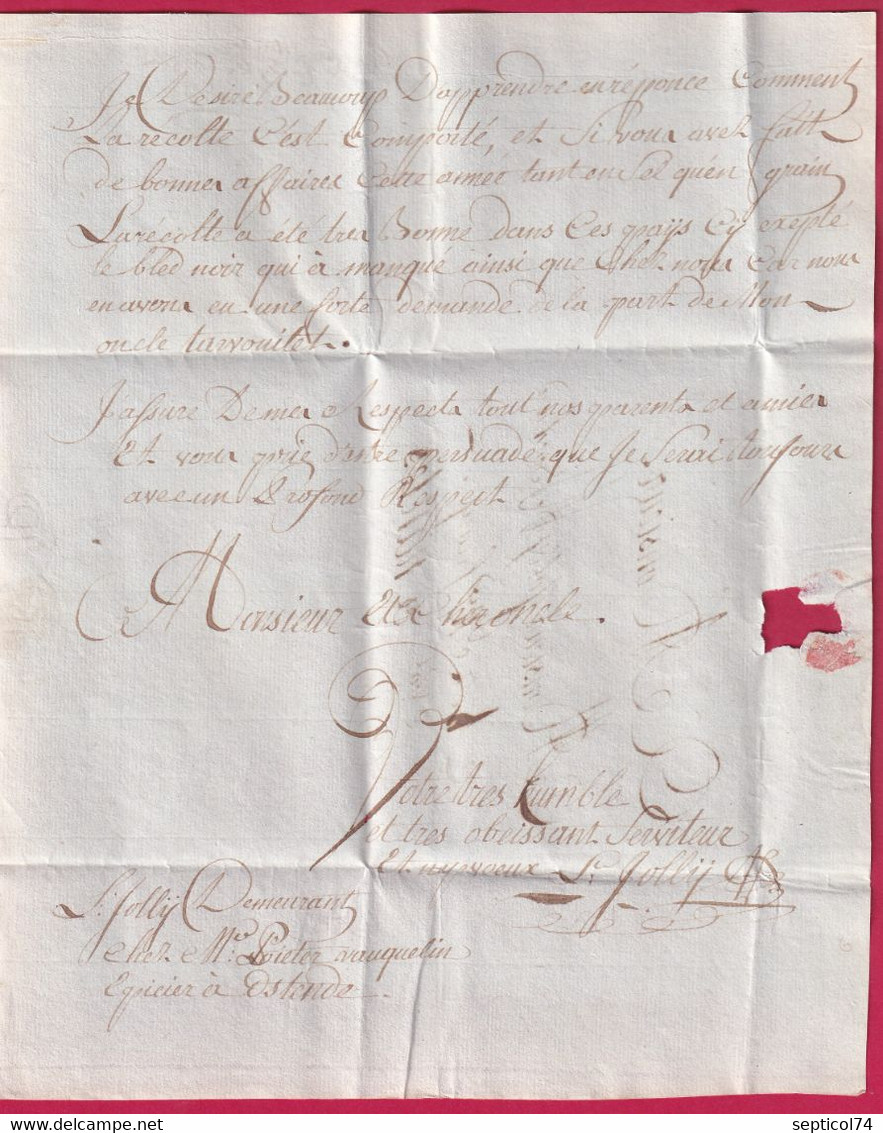 Je Desire Beaucoup D'apprendre en réponce Comment
La récolte C'est Comporté, et Si vous avez fait
de bonnes affaires Cette année tant en Sel qu'en grain
La récolte a été tres Bonne dans Ces pays Cy exepté
le bled noir qui à manqué ainsi que Chez nous Car nous
en avons eu une forte demande de la part de Mon
oncle tarrouilet.
J'assure De mes Respects tout nos parents et amies
Et vous prie d'estre persuadé que Je Serai toujours
avec un Profond Respect
Monsieur Et Cher oncle.
Votre tres humble
et tres obeissant Serviteur
Et nepveux Sr. Jollÿ
Sr. Jollÿ Demeurant
chez Mr. Pieter vauquelin
Epicier à Ostende.
septicol74